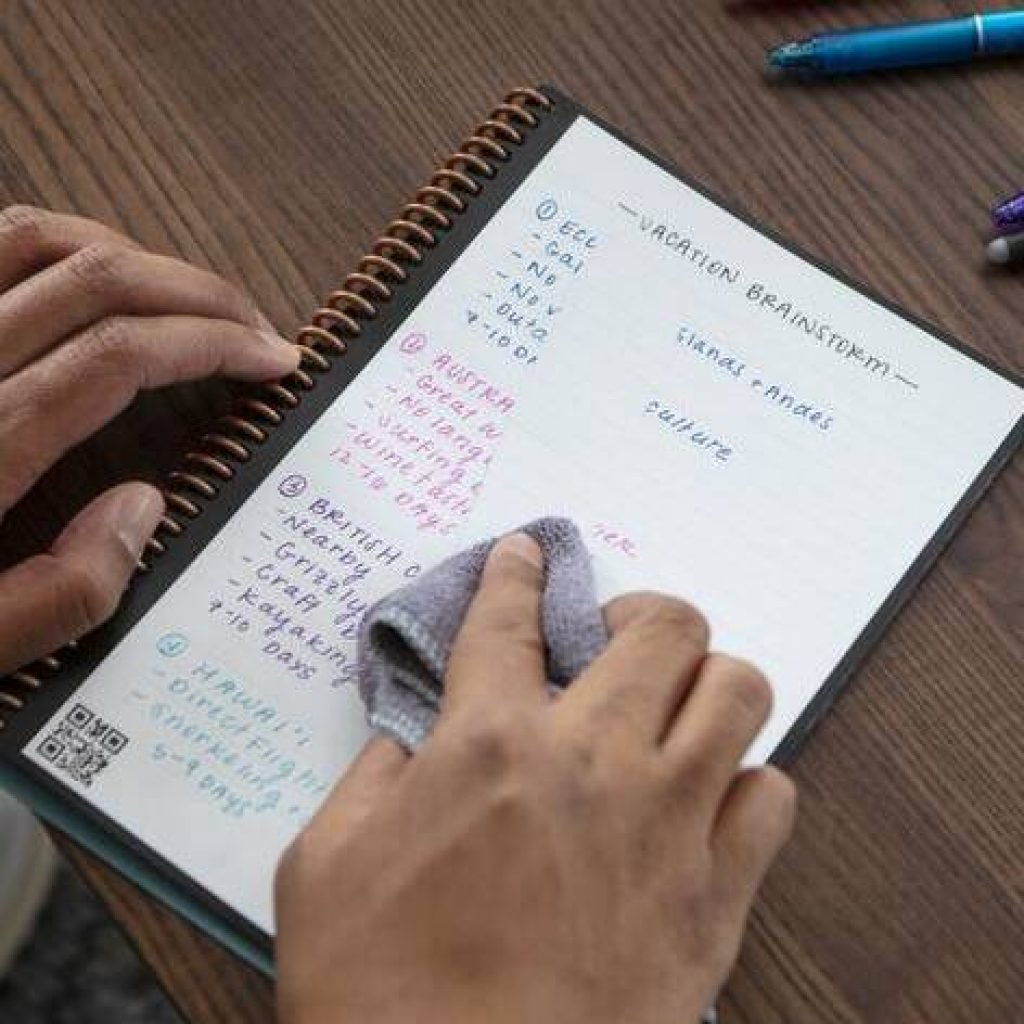 —VACATION BRAINSTORM—
① ECU
- Gal
slands + Andes
- No
- No v
culture
- Outd
7-10 Da
② AUSTRA
- Great w
- No lang
- Surfing
- Wine Tasti
12-18 DAYS
③ BRITISH C
- Nearby
- Grizzly
- Craft b
- Kayaking
7-10 DAYS
④ HAWAI'I
- Direct Flight
- Snorkeling +
5-9 DAYS